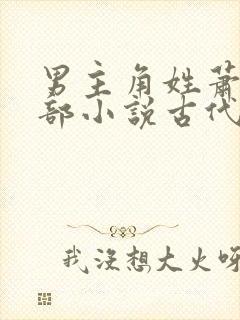 男主角姓蕭
部小説古代
我沒想大火呀